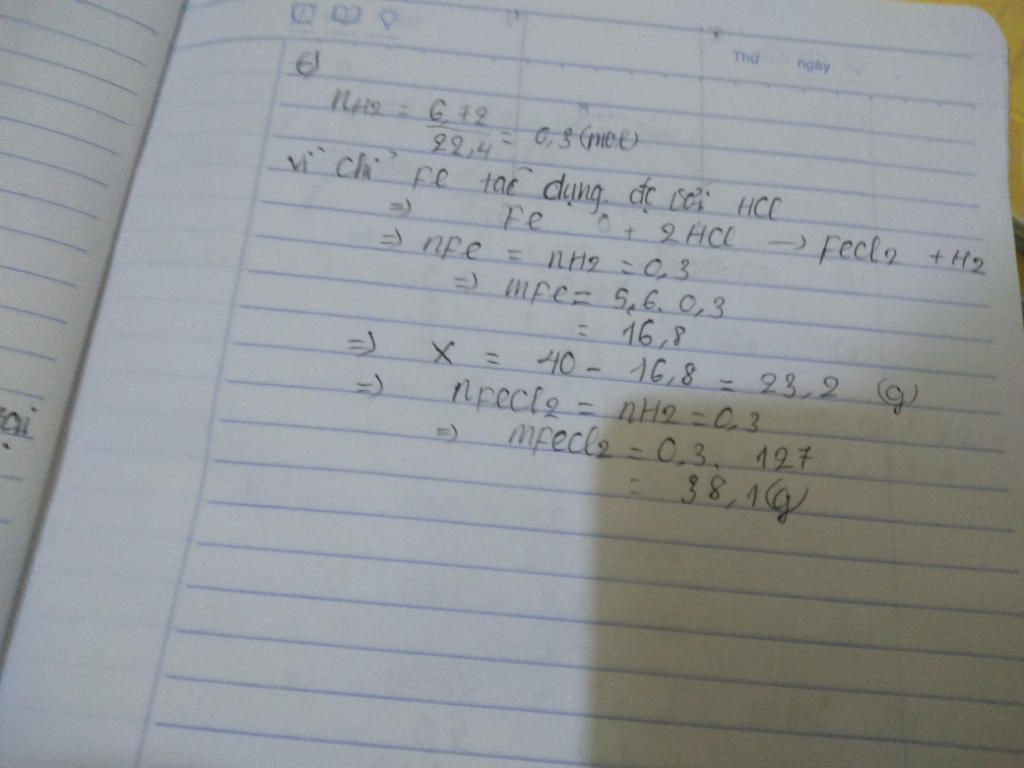 Thứ ngày
6)
nH2 = 6,72 / 22,4 = 0,3 (mol)
vì chỉ Fe tác dụng đc với HCl
=> Fe + 2HCl -> FeCl2 + H2
=> nFe = nH2 = 0,3
=> mFe = 5,6. 0,3
= 16,8
=> X = 40 - 16,8 = 23,2 (g)
=> nFeCl2 = nH2 = 0,3
=> mFeCl2 = 0,3. 127
= 38,1(g)